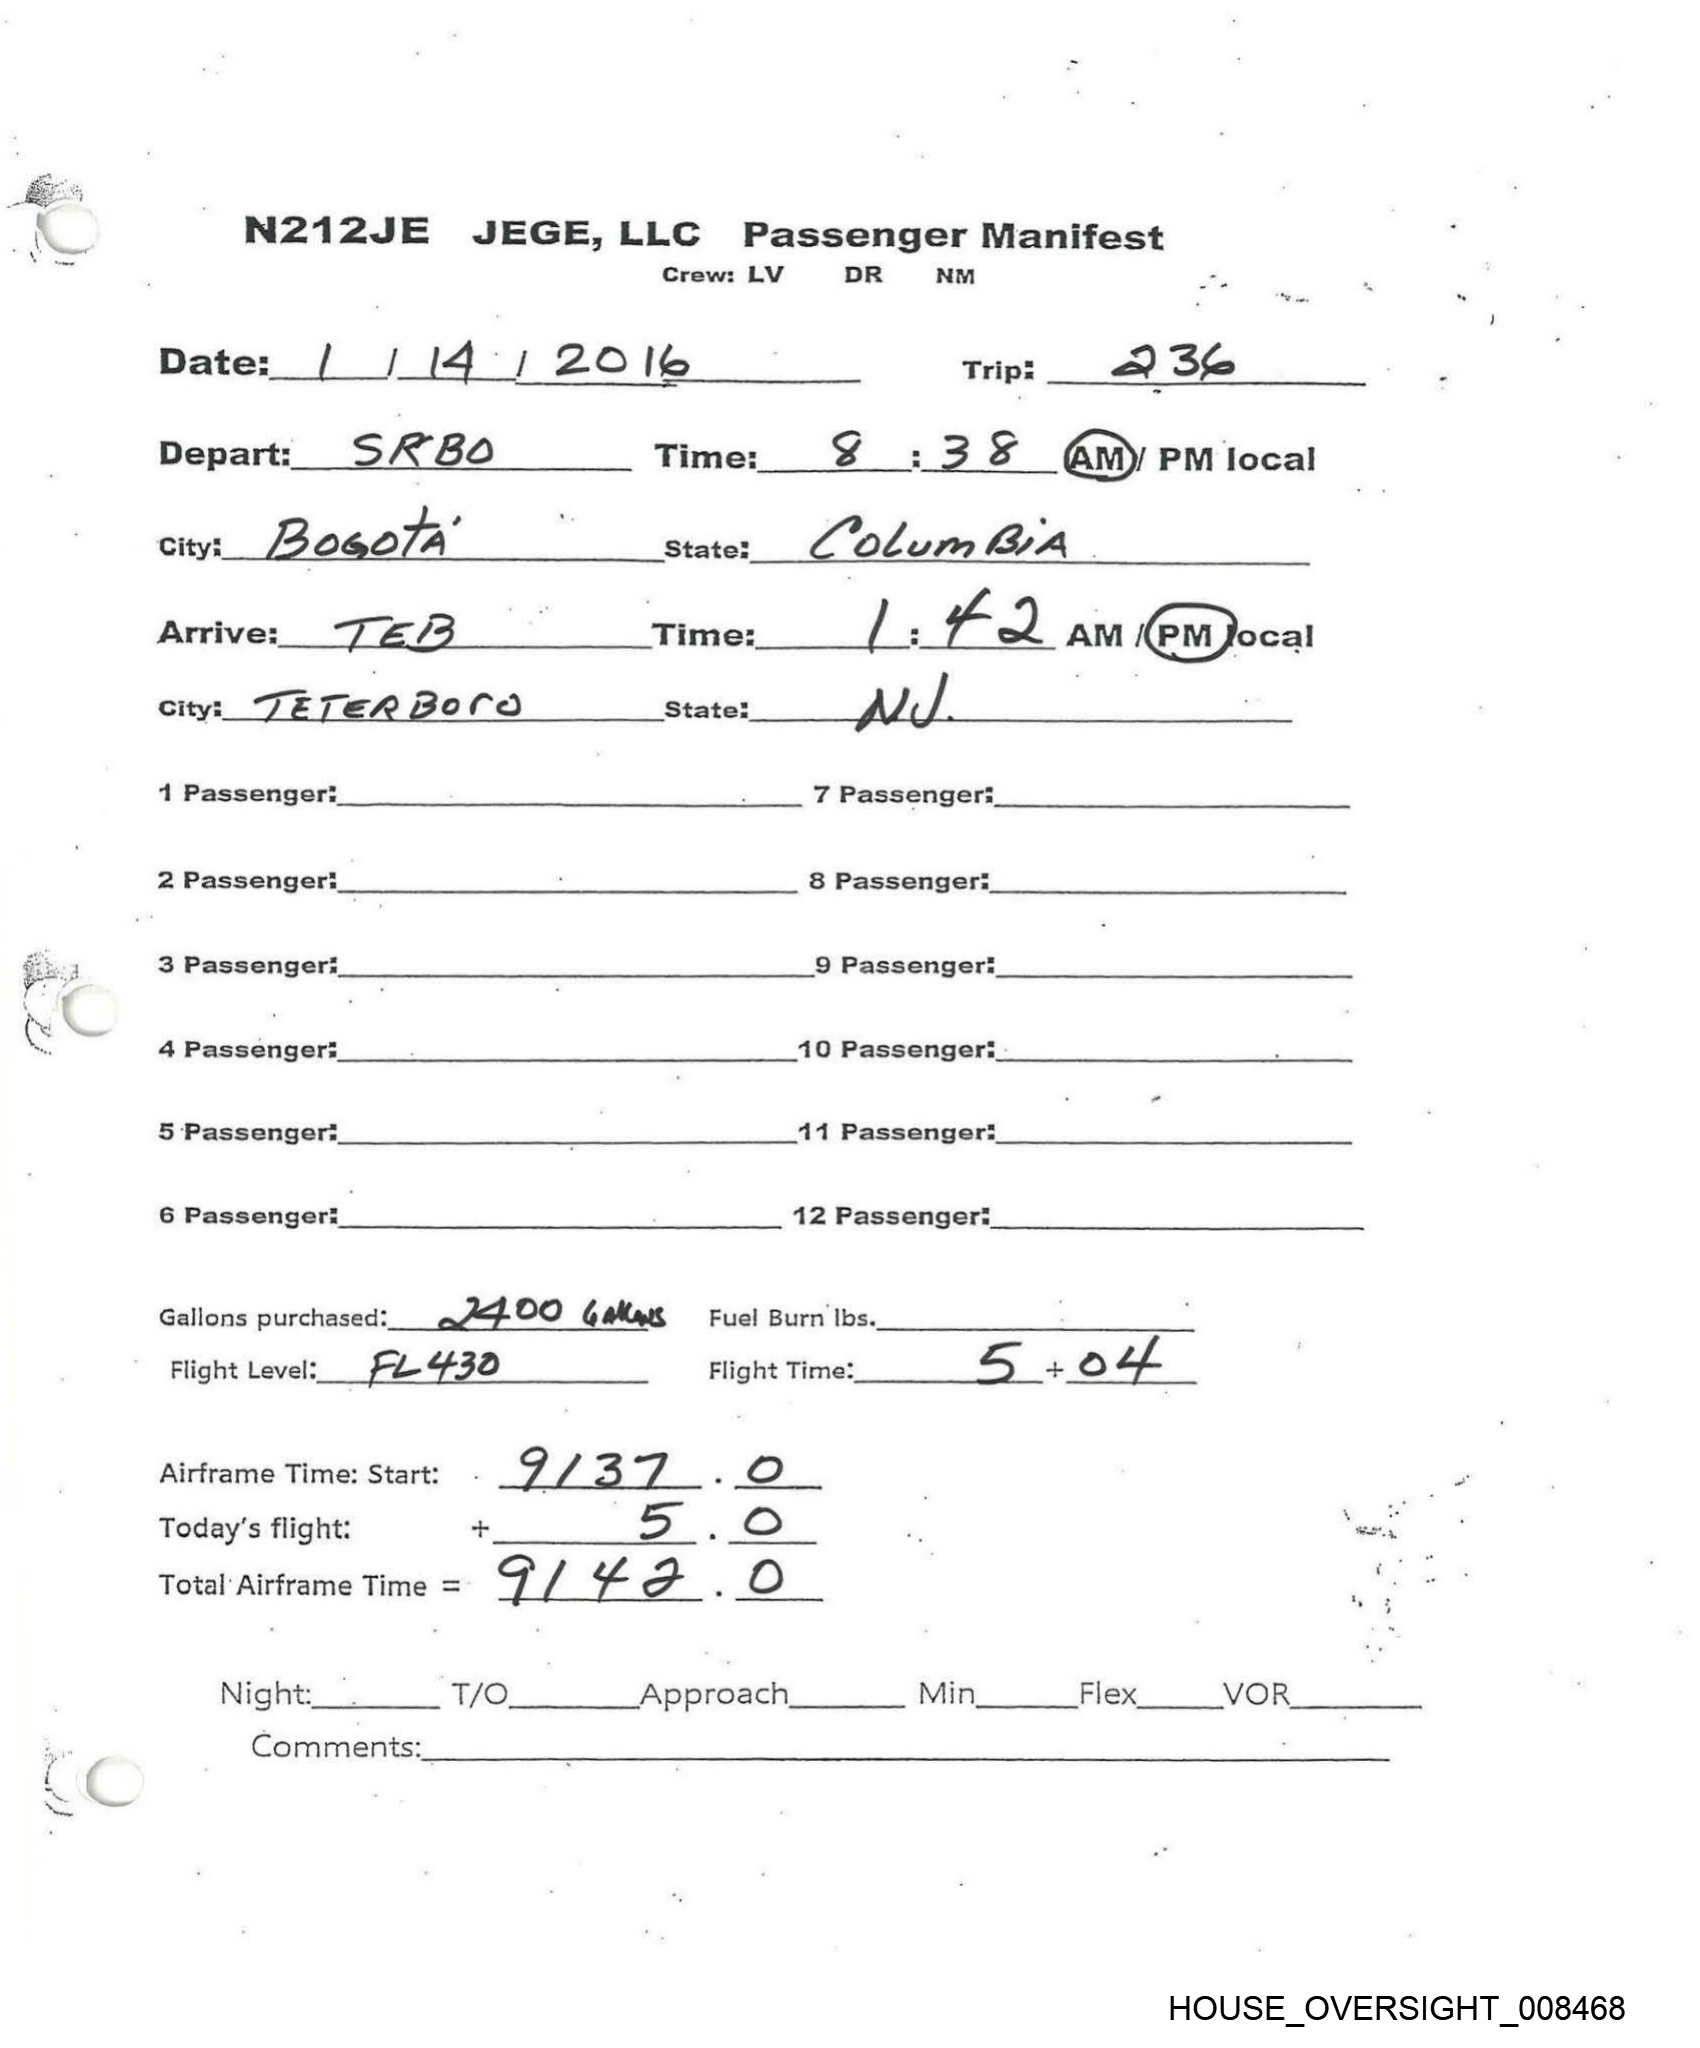 N212JE JEGE, LLC Passenger Manifest
Crew: LV DR NM
Date: 1 / 14 / 2016 Trip: 236
Depart: SKBO Time: 8 : 38 AM / PM local
City: Bogotá State: Columbia
Arrive: TEB Time: 1 : 42 AM / PM local
City: TETERBoro State: NJ.
1 Passenger: 7 Passenger:
2 Passenger: 8 Passenger:
3 Passenger: 9 Passenger:
4 Passenger: 10 Passenger:
5 Passenger: 11 Passenger:
6 Passenger: 12 Passenger:
Gallons purchased: 2400 Gallons Fuel Burn lbs.
Flight Level: FL430 Flight Time: 5 + 04
Airframe Time: Start: 9137 . 0
Today's flight: + 5 . 0
Total Airframe Time = 9142 . 0
Night: T/O Approach Min Flex VOR
Comments:
HOUSE_OVERSIGHT_008468